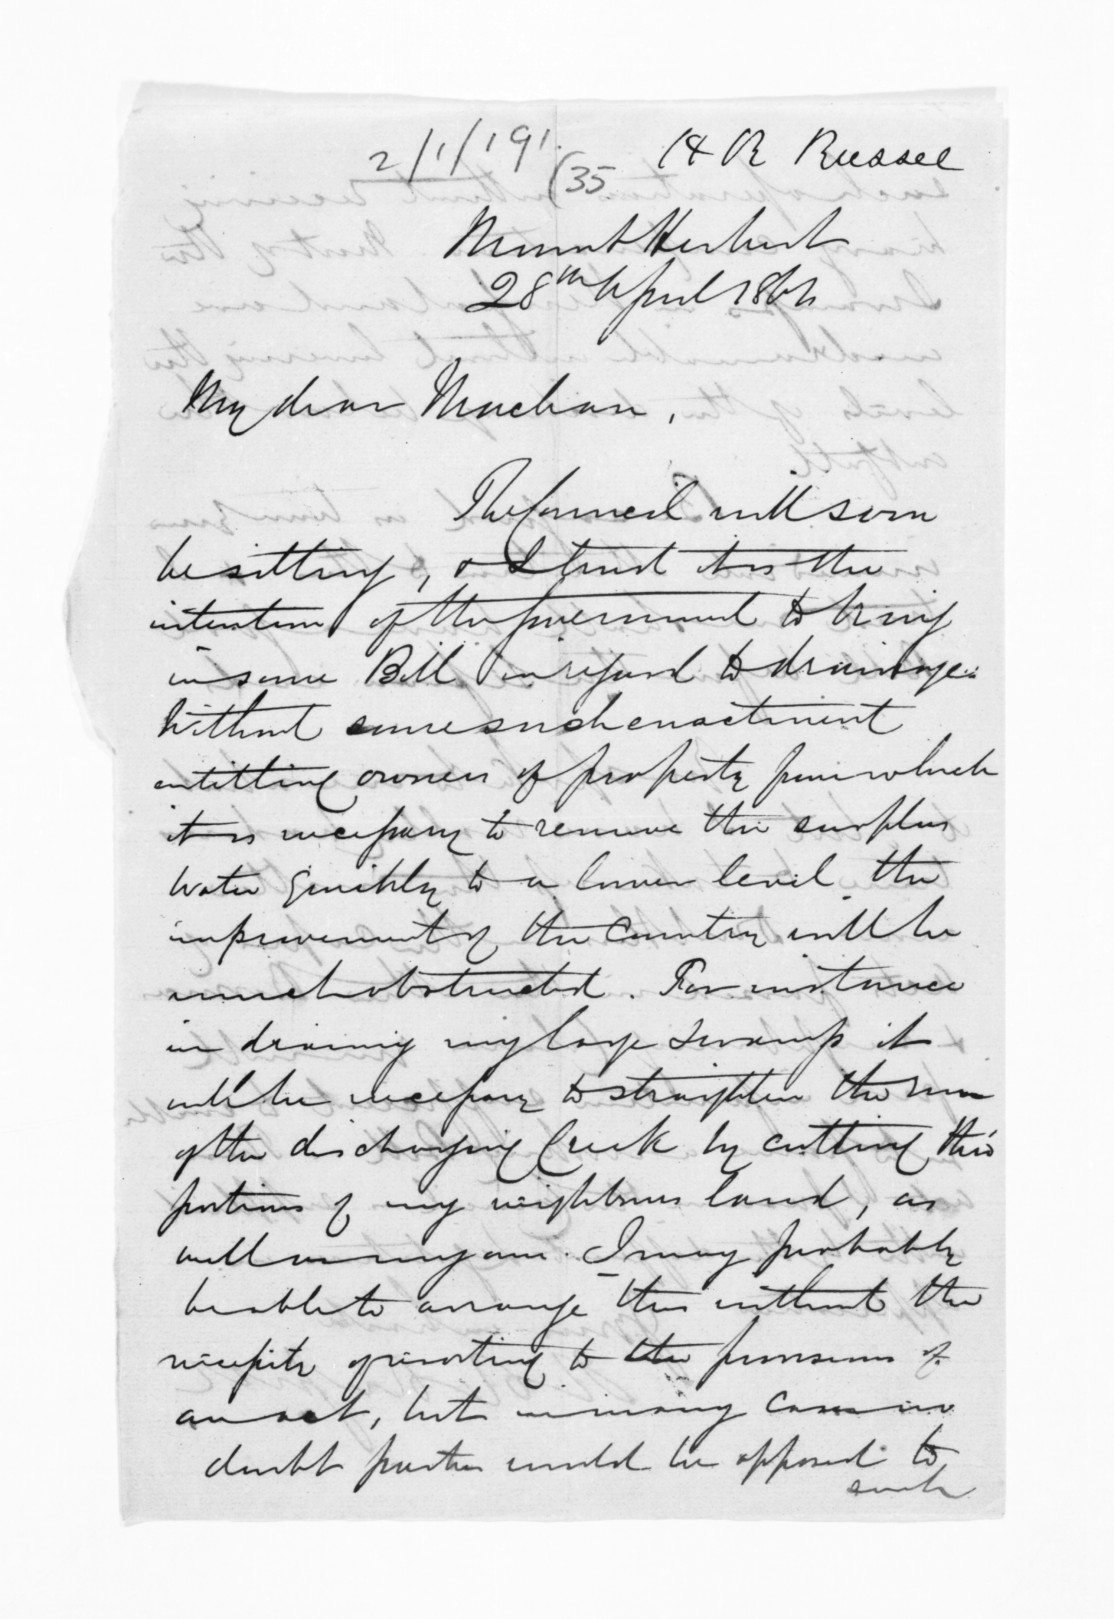 2/1/191
(35
H R Russel
Mount Herbert
28th April 1864
My dear Maclean,
The Council will soon
be sitting, & I trust it is the
intention of the Government to bring
in some Bill in regard to drainage.
Without some such enactment
entitling owners of property from which
it is necessary to remove the surplus
water quickly to a lower level the
improvement of the Country will be
much obstructed. For instance
in draining my large swamp it
will be necessary to straighten the run
of the discharging Creek by cutting thro'
portions of my neighbours land, as
well as my own. I may probably
be able to arrange this without the
necessity of resorting to the provisions of
an act, but in many cases no
doubt parties would be opposed to
such